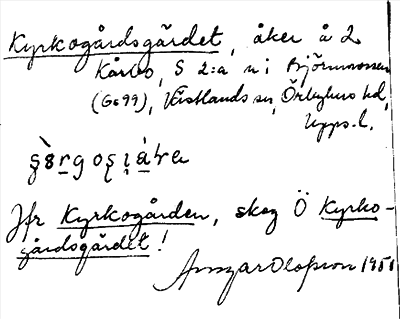 Kyrkogårdsgärdet, åker å 2
Kårbo, S 2:a n i Björnmossen
(Ge99), Västlands sn, Örbyhus hd,
Upps. l.
Jfr Kyrkogården, skog Ö Kyrko-
gårdsgärdet!
Ansgar Olofsson 1951